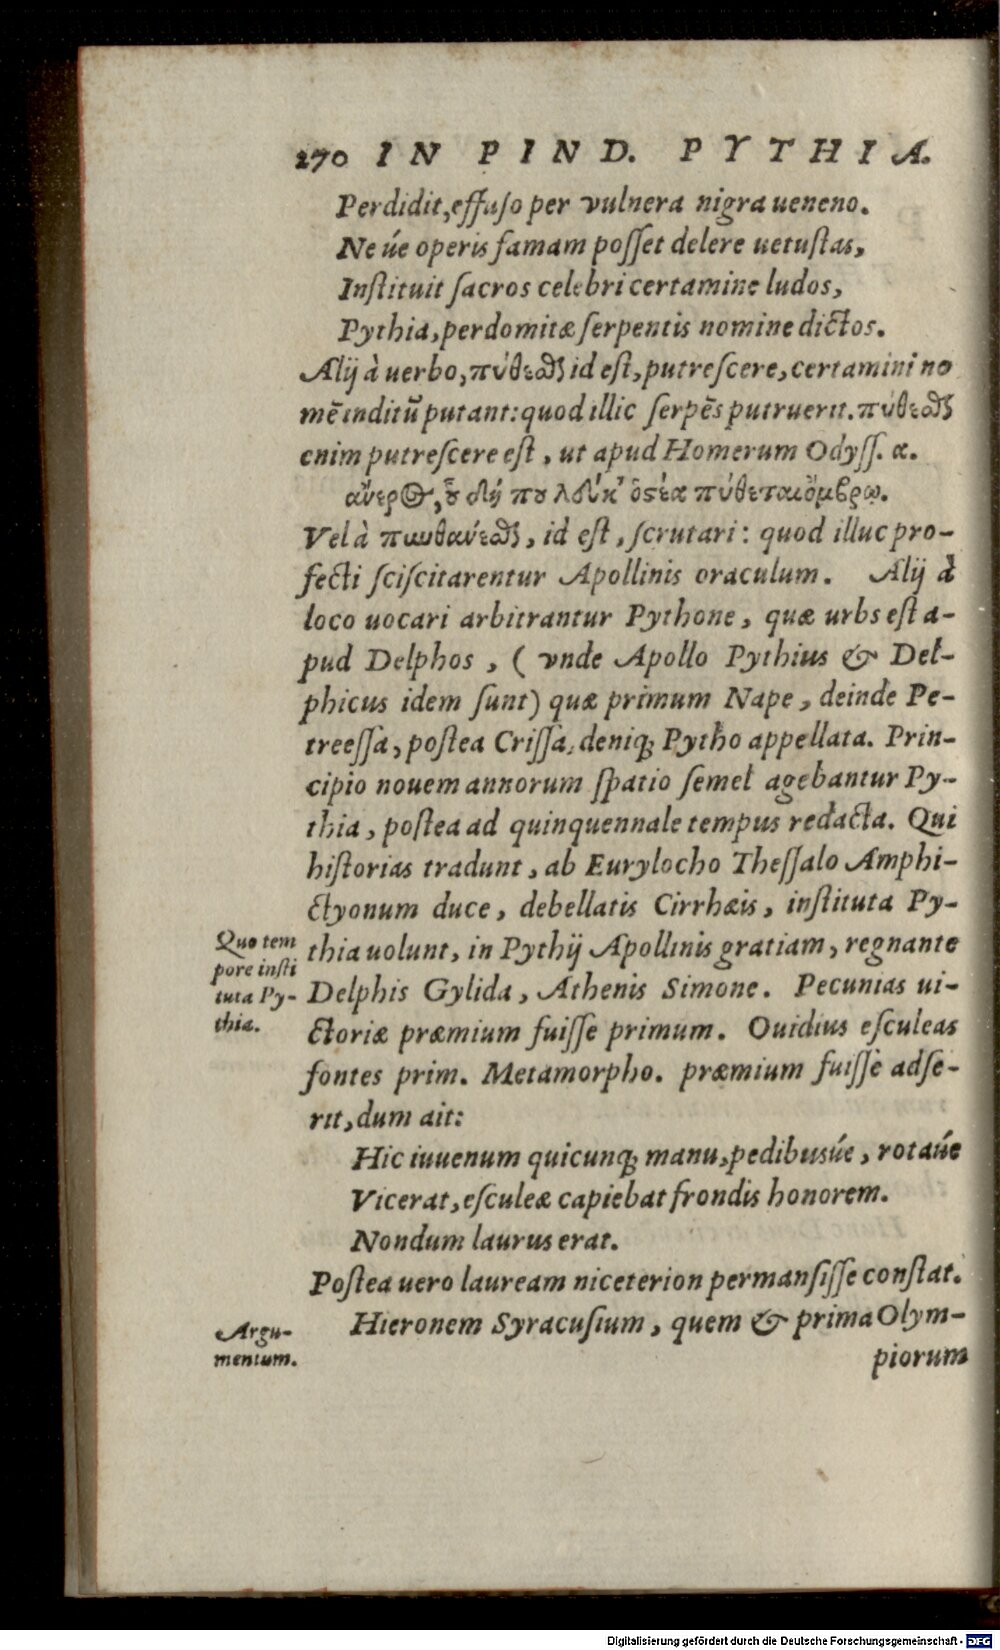 270 IN PIND. PYTHIA.
Perdidit, effuso per vulnera nigra ueneno.
Ne úe operis famam posset delere uetustas,
Instituit sacros celebri certamine ludos,
Pythia, perdomitæ serpentis nomine dictos.
Alij à uerbo, πύθεσθαι id est, putrescere, certamini no
mē inditū putant: quod illic serpēs putruerit. πύθεσθαι
enim putrescere est, ut apud Homerum Odyss. α.
ἀνέρος, οὗ δή που λεύκ' ὀστέα πύθεται ὄμβρῳ.
Vel à πυνθάνεσθαι, id est, scrutari: quod illuc pro-
fecti sciscitarentur Apollinis oraculum. Alij à
loco uocari arbitrantur Pythone, quæ urbs est a-
pud Delphos, (vnde Apollo Pythius & Del-
phicus idem sunt) quæ primum Nape, deinde Pe-
treessa, postea Crissa, deniq; Pytho appellata. Prin-
cipio nouem annorum spatio semel agebantur Py-
thia, postea ad quinquennale tempus redacta. Qui
historias tradunt, ab Eurylocho Thessalo Amphi-
ctyonum duce, debellatis Cirrhæis, instituta Py-
Quo tem
pore insti
tuta Py-
thia.
thia uolunt, in Pythij Apollinis gratiam, regnante
Delphis Gylida, Athenis Simone. Pecunias ui-
ctoriæ præmium fuisse primum. Ouidius esculeas
fontes prim. Metamorpho. præmium fuisse adse-
rit, dum ait:
Hic iuuenum quicunq; manu, pedibusúe, rotaúe
Vicerat, esculeæ capiebat frondis honorem.
Nondum laurus erat.
Postea uero lauream niceterion permansisse constat.
Argu-
mentum.
Hieronem Syracusium, quem & prima Olym-
piorum
Digitalisierung gefördert durch die Deutsche Forschungsgemeinschaft - DFG